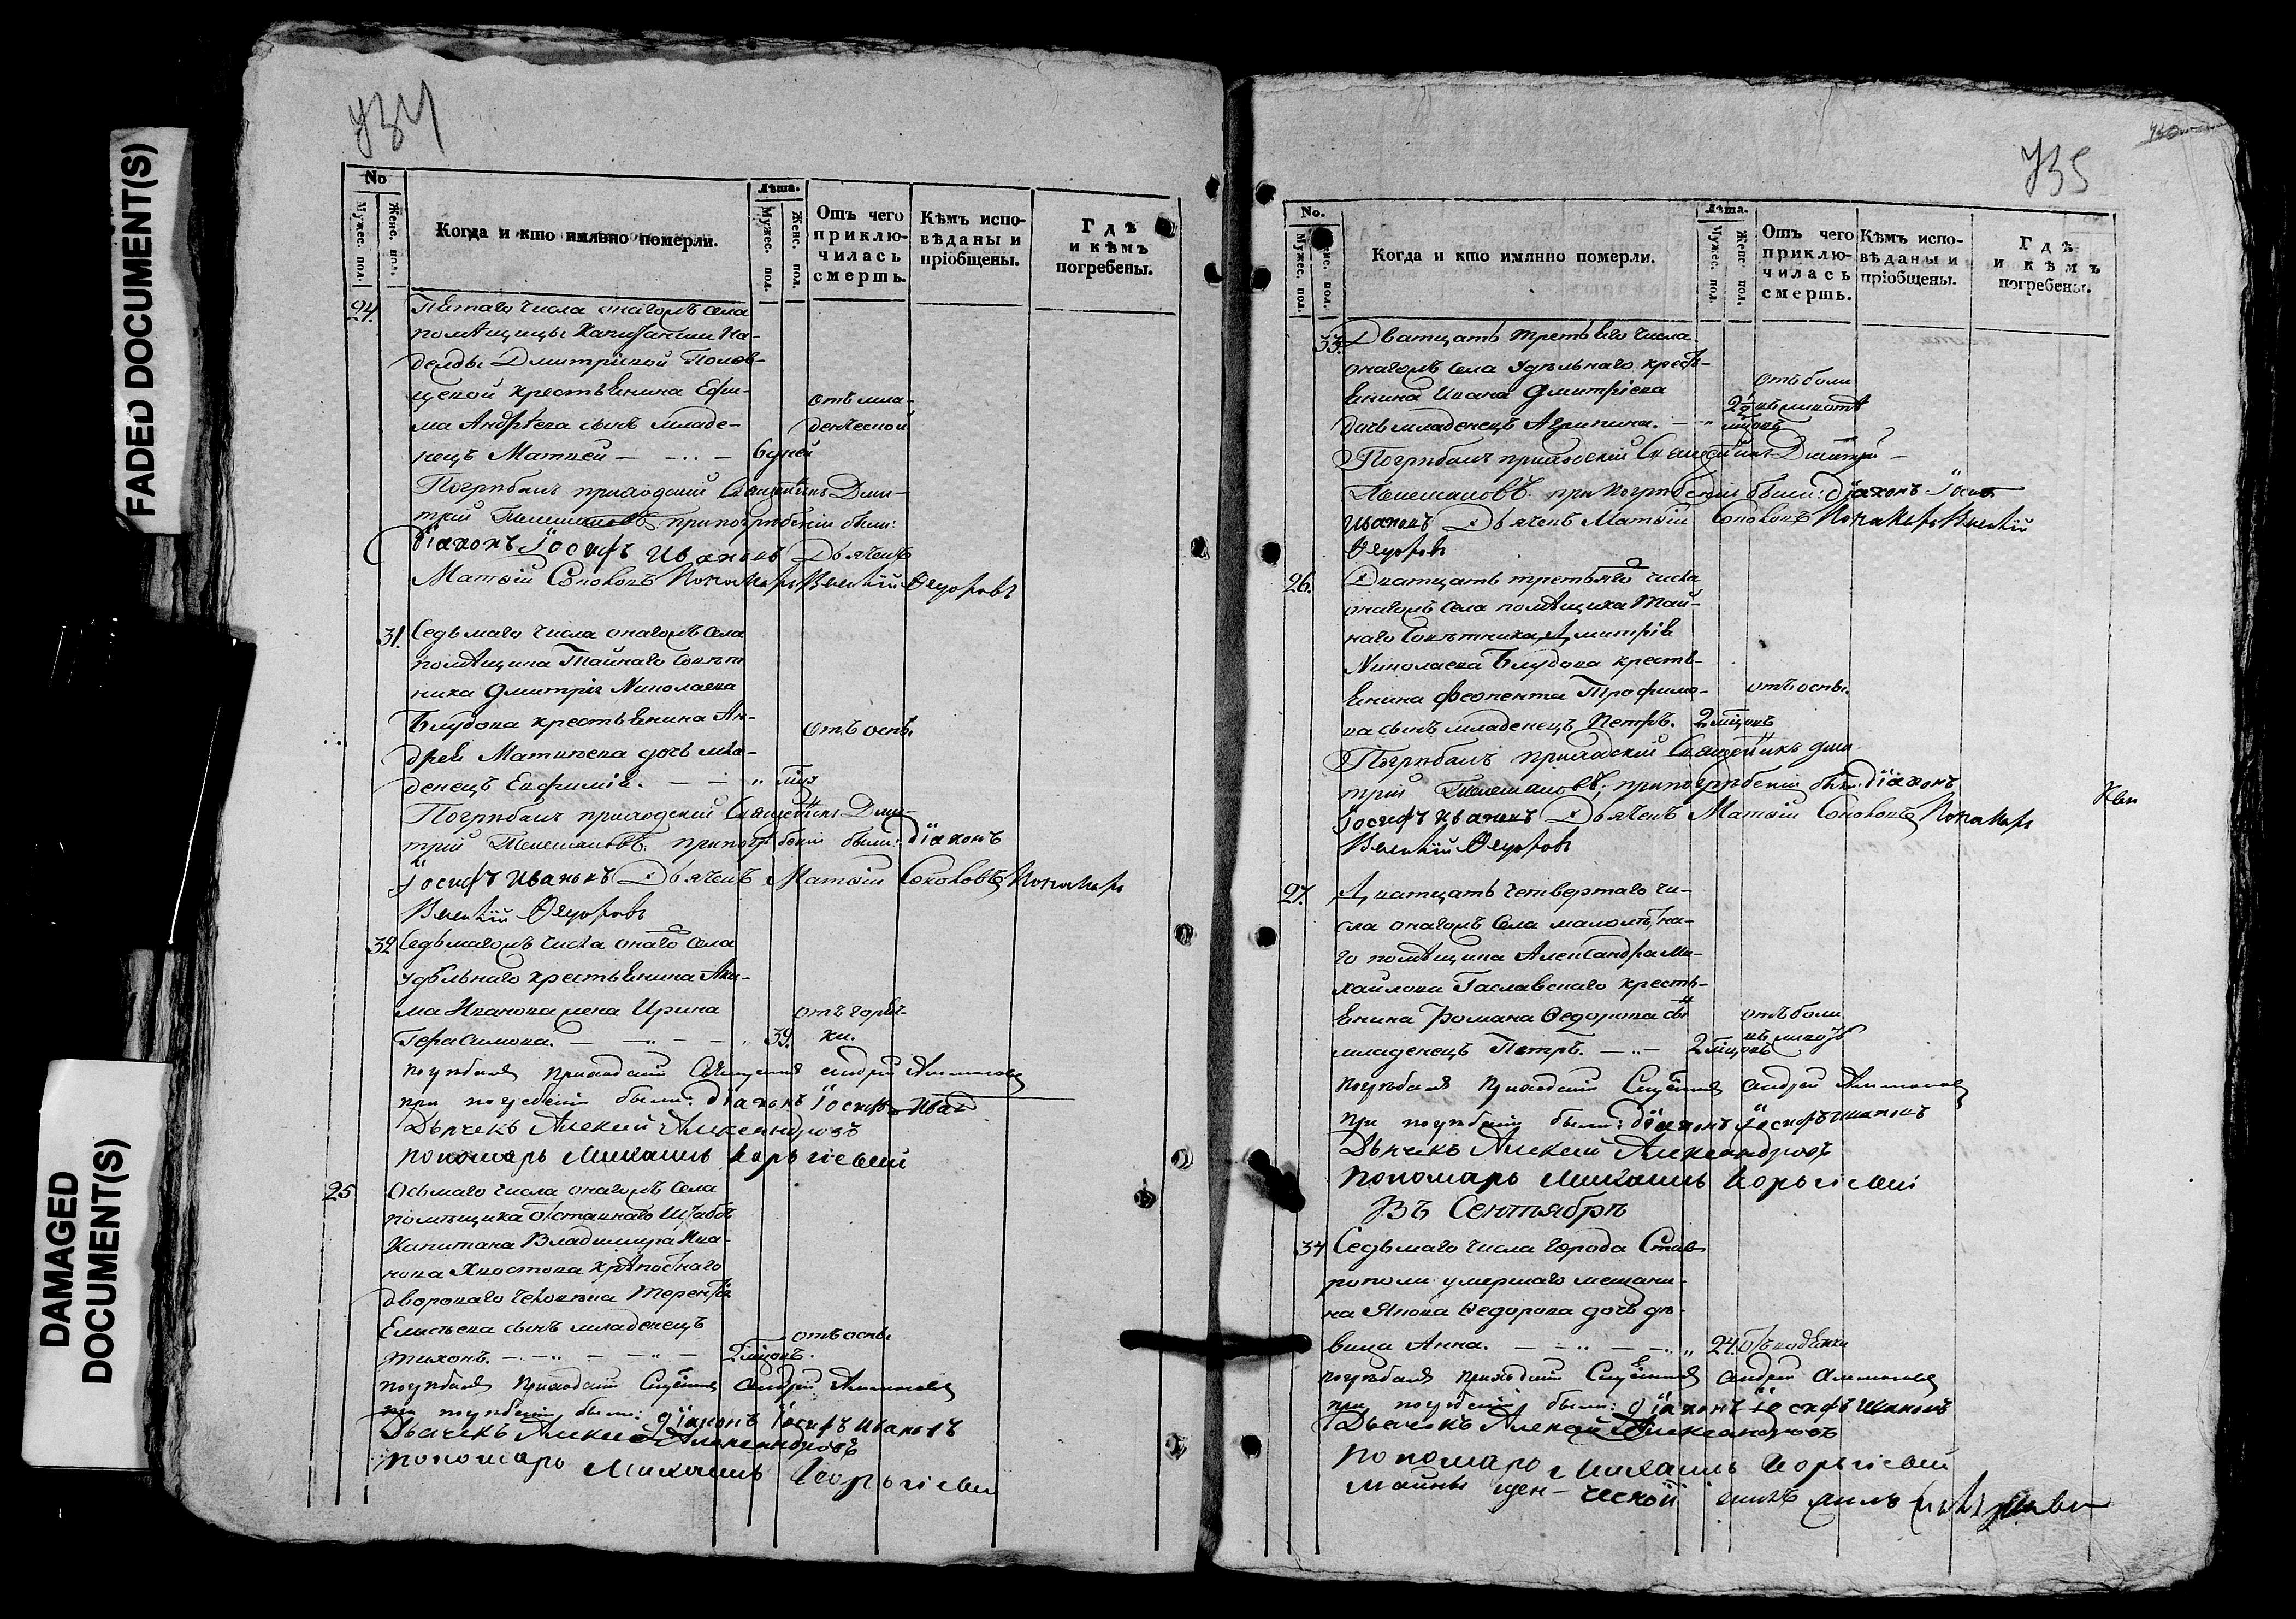 FADED DOCUMENT(S)
DAMAGED
DOCUMENT(S)
734
No
Мужес. пол.
Женс. пол.
Когда и кто имянно померли.
Лѣта.
Мужес. пол.
Женс. пол.
Отъ чего
приклю-
чилась
смерть.
Кѣмъ испо-
вѣданы и
пріобщены.
Гдѣ
и кѣмъ
погребены.
24. Пятаго числа онагожъ села
помѣщицы Капитанши На-
дежды Дмитріевой
крестьянина Ефи-
ма Андрѣева сынъ младе-
нецъ Матвей — 6 дней
отъ мла-
денческой
Погребалъ приходскій Священникъ Дми-
трій при погребеніи были:
діаконъ Іосифъ Ивановъ Дьячекъ
Матвій Соколовъ Пономарь Василій Ѳедоровъ
31. Седьмаго числа онагожъ села
помѣщика Тайнаго Совѣт
ника Дмитрія Николаева
Блудова крестьянина Ан-
дрея Матвѣева дочь мла-
денецъ Евфимія.
отъ оспы
Погребалъ приходскій Священникъ Дми-
трій при погребеніи были: діаконъ
Іосифъ Ивановъ Дьячекъ Матвій Соколовъ Пономарь
Василій Ѳедоровъ
32 Седьмагожъ числа онаго села
удѣльнаго крестьянина Аки-
ма Иванова жена Ирина
Герасимова. — 39.
отъ горяч-
ки.
погребалъ приходскій Священникъ Андрей
при погребеніи были: діаконъ Іосифъ Иван
Дьячекъ Алексей Александровъ
пономарь Михаилъ
25 Осьмаго числа онагожъ села
помѣщика отставнаго Штабсъ
Капитана Владимира Ива-
нова Хвостова крѣпостнаго
двороваго человѣка Терентья
Елисѣева сынъ младенецъ
Тихонъ. — 2 мѣцовъ.
отъ оспы
погребалъ приходскій Священникъ Андрей
при погребеніи были: діаконъ Іосифъ Ивановъ
Дьячекъ Алексей Александровъ
пономарь Михаилъ
735
No.
Мужес. пол.
Женс. пол.
Когда и кто имянно померли.
Лѣта.
Мужес. пол.
Женс. пол.
Отъ чего
приклю-
чилась
смерть.
Кѣмъ испо-
вѣданы и
пріобщены.
Гдѣ
и кѣмъ
погребены.
33. Дватцать третьяго числа
онагожъ села удѣльнаго кресть-
янина Ивана Дмитріева
дочь младенецъ Агрипина. — 2½ мѣцовъ
отъ боли
въ животѣ
Погребалъ приходскій Священникъ Дмитрій
при погребеніи были: діаконъ Іосифъ
Ивановъ Дьячекъ Матвій Соколовъ Пономарь Василій
Ѳедоровъ
26. Дватцать третьяго числа
онагожъ села помѣщика Тай-
наго Совѣтника Дмитрія
Николаева Блудова кресть-
янина Трофимо-
ва сынъ младенецъ Петръ. 2 мѣцовъ
отъ оспы.
Погребалъ приходскій Священникъ Дми
трій при погребеніи были: діаконъ
Іосифъ Ивановъ Дьячекъ Матвій Соколовъ Пономарь
Василій Ѳедоровъ
27. Дватцать четвертаго чи-
сла онагожъ села малолѣтна-
го помѣщика Александра Ми-
хайлова кресть-
янина Романа Ѳедорова сы
младенецъ Петръ. — 2 мѣцовъ
отъ боли
въ животѣ
погребалъ приходскій Священникъ Андрей
при погребеніи были: діаконъ Іосифъ Ивановъ
Дьячекъ Алексей Александровъ
пономарь Михаилъ
Въ Сентябрѣ
34 Седьмаго числа города Став-
рополя умершаго мещани-
на Якова Ѳедорова дочь дѣ-
вица Анна. — 24.
погребалъ приходскій Священникъ Андрей
при погребеніи были: діаконъ Іосифъ Ивановъ
Дьячекъ Алексей Александровъ
пономарь Михаилъ